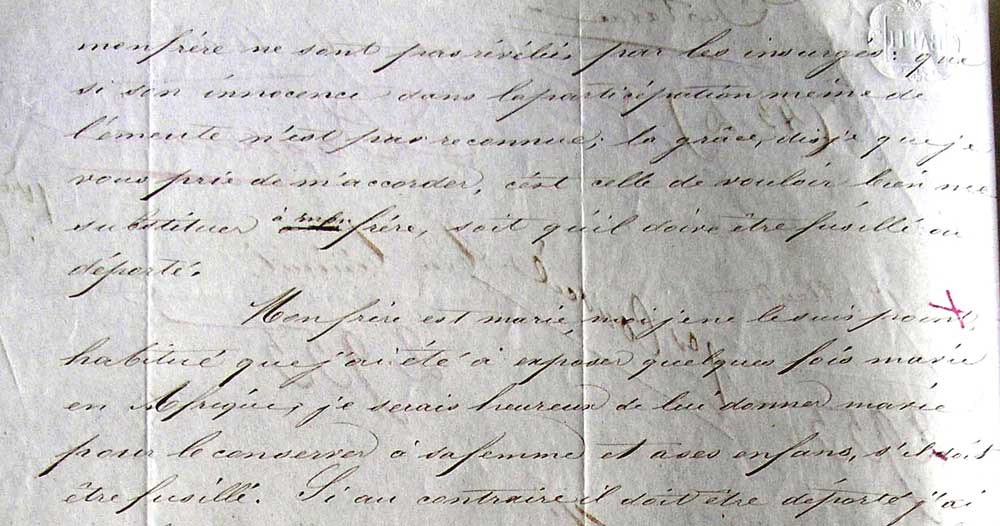 mon frère ne sont pas révélés par les insurgés; que
si son innocence dans la participation même de
l'émeute n'est pas reconnue; la grâce, dis-je que je
vous prie de m'accorder, c'est celle de vouloir bien me
substituer à mon frère, soit qu'il doive être fusillé ou
déporté.
Mon frère est marié, moi je ne le suis point,
habitué que j'ai été à exposer quelques fois ma vie
en Afrique, je serais heureux de lui donner ma vie
pour le conserver à sa femme et a ses enfans, s'il doit
être fusillé. Si au contraire il doit être déporté j'ai